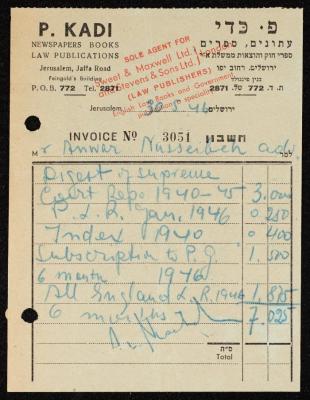 P. KADI
NEWSPAPERS BOOKS
LAW PUBLICATIONS
Jerusalem, Jaffa Road
Feingold's Building
P.O.B. 772 Tel. 2871
פ. כדי
עתונים, ספרים
ספרי חוק והוצאות ממשלת א"י
ירושלים, רחוב יפו
בנין פינגולד
ת. ד. 772 טל. 2871
SOLE AGENT FOR
Sweet & Maxwell Ltd.
and Stevens & Sons Ltd. London
(LAW PUBLISHERS)
English Law Books and Government
publications specialist
Jerusalem, 30-5-46 ירושלים
INVOICE No 3051 חשבון
Mr Anwar Nusseibeh adv. למר
Digest of Supreme
Court Rep. 1940-45 3.000
P.L.R. Jan, 1946 0 250
Index 1940 0 400
Subscription to P.G. 1. 500
6 month 1946
All England L.R. 1946 1.875
6 months 7.025
ס"ה
Total